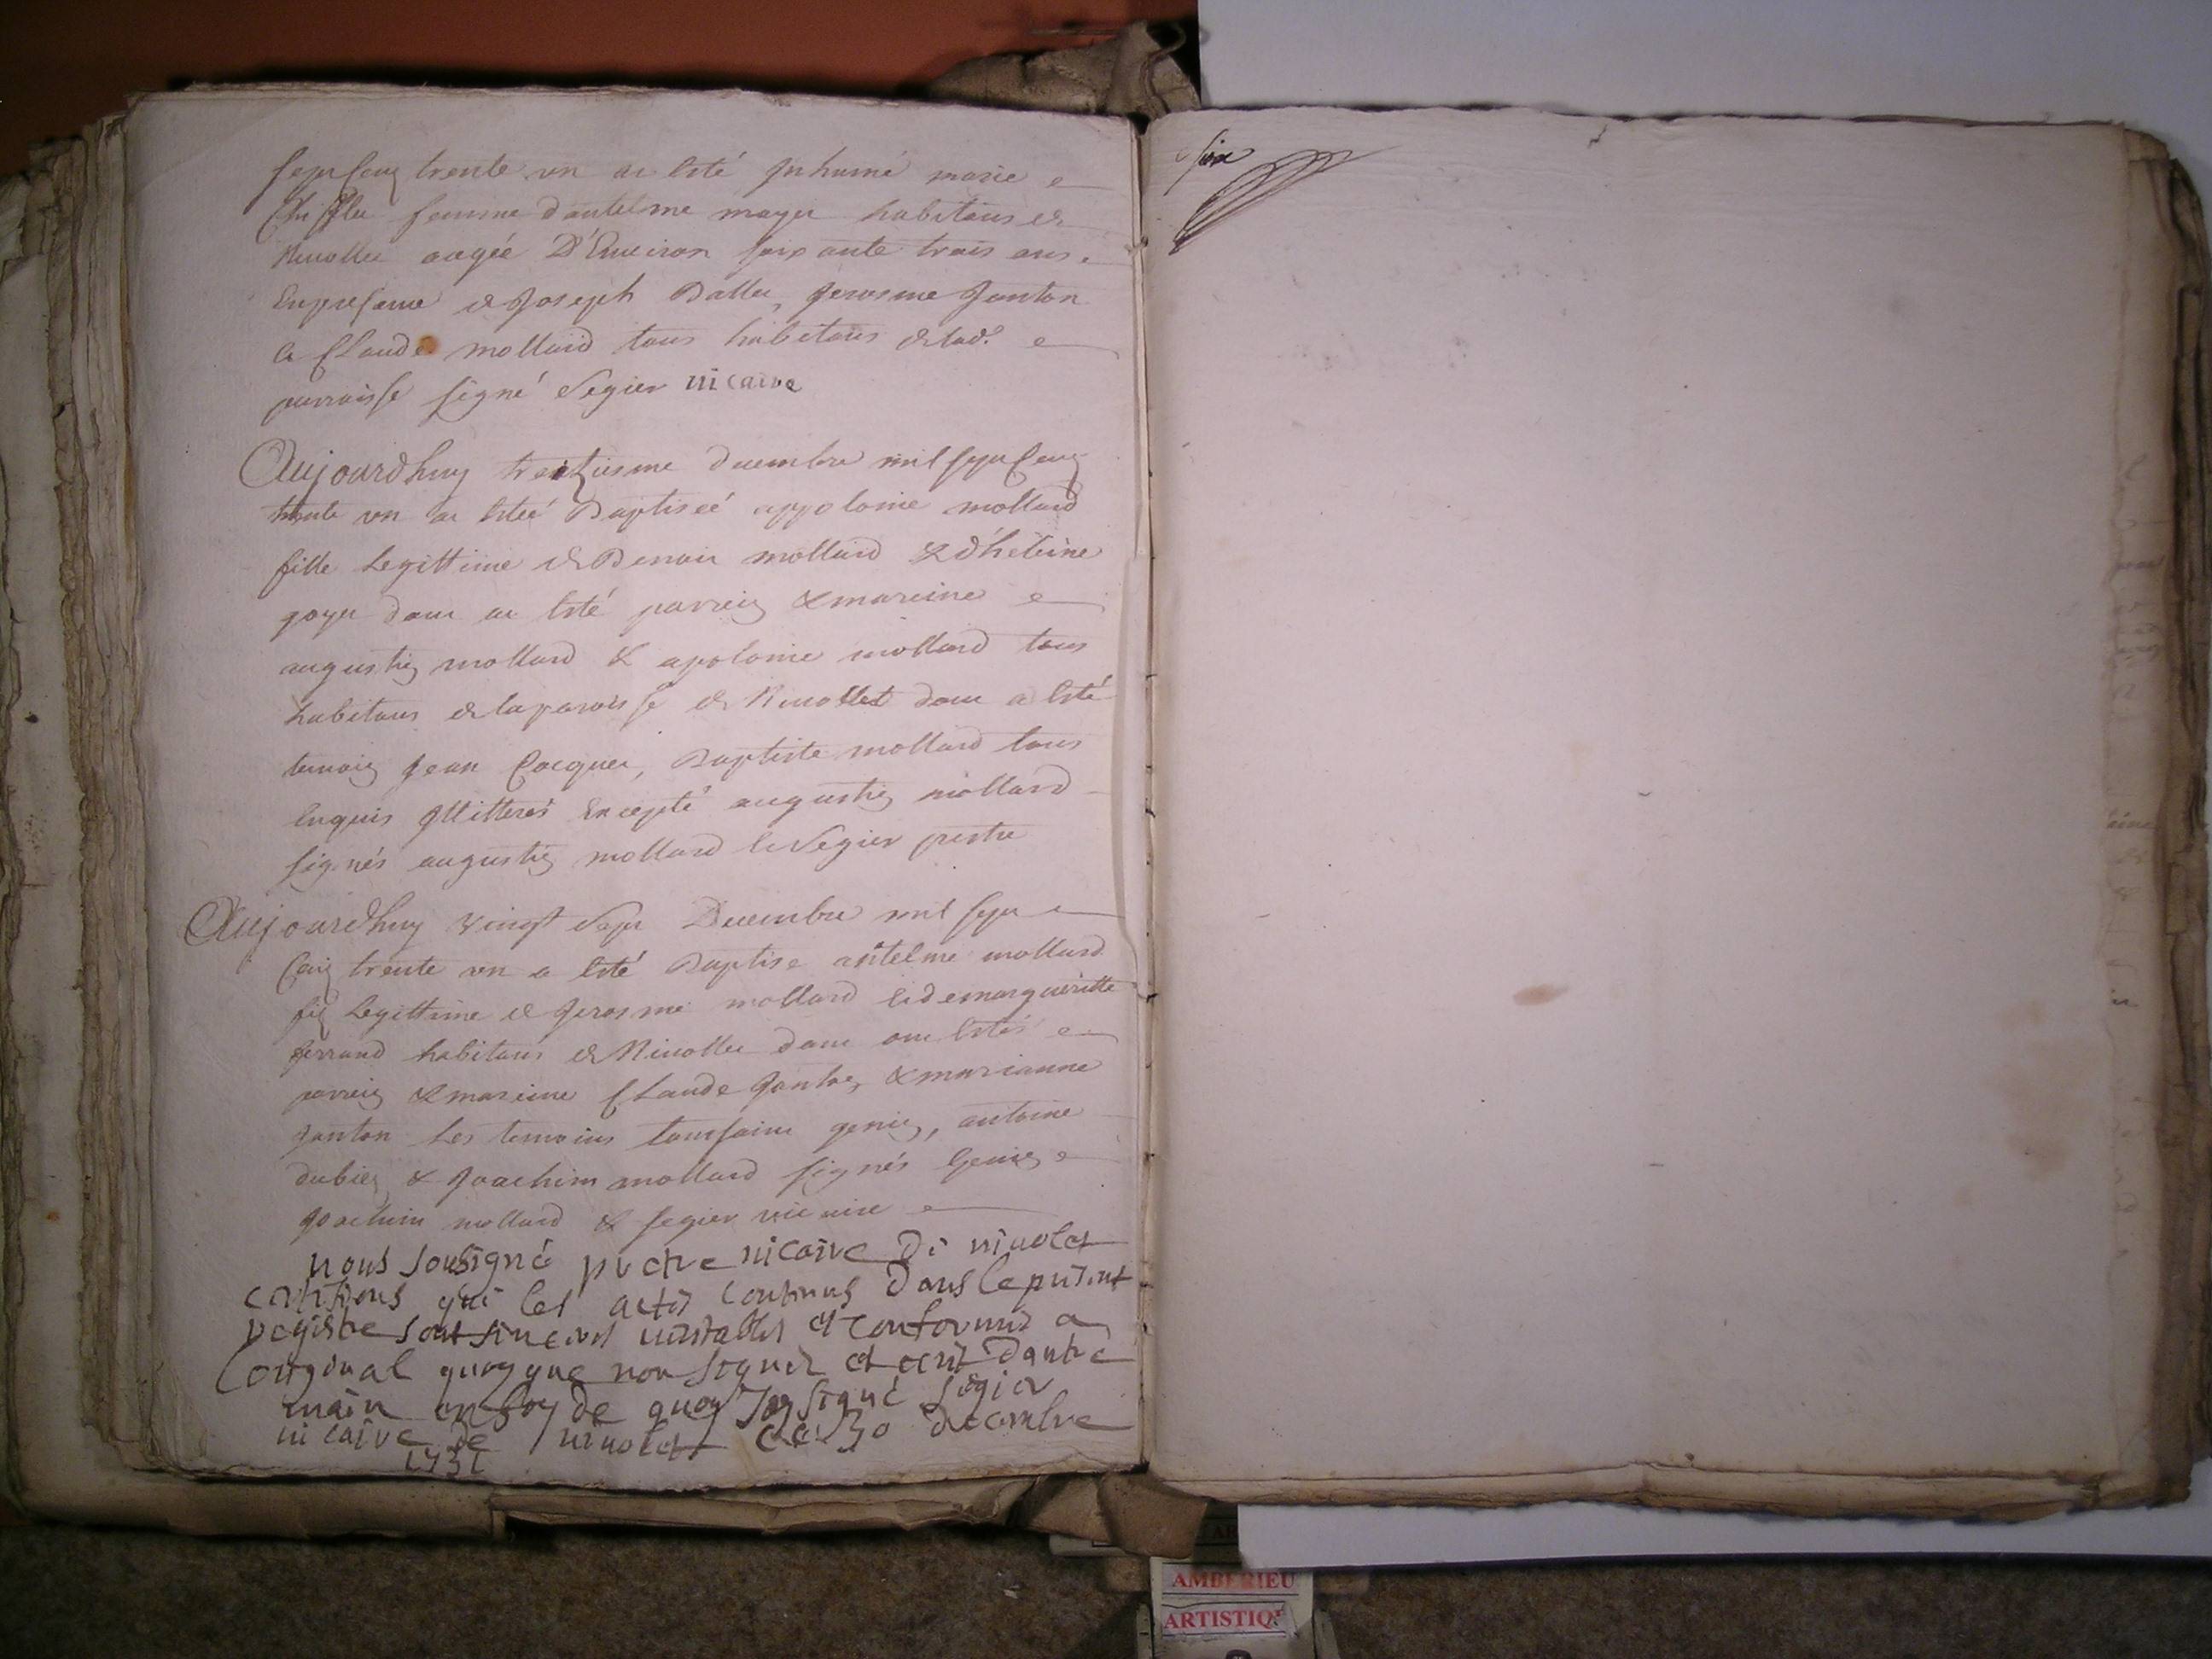 sept Cens trente un at Esté Inhumé marie
Chifflet femme dantelme moyet habitans de
Nivollet aagée D'Environ soixante trois ans.
En presence de Joseph Ballet, Jerosme Janton
et Claude mollard tous habitans de lad.e
parroisse signé Segier vicaire
Aujourdhuy treiziesme decembre mil sept Cens
trente un at Esteé Baptiseé appolonie mollard
fille Legittime de Benoit mollard & d'heleine
goyet dont at Esté parrein & mareine
augustin mollard & apolonie mollard tous
habitans de la paroisse de Nivollet dont a Esté
temoin Jean Cocquet, Baptiste mollard tous
Enquis Illitteres Excepté augustin mollard
signés augustin mollard et Segier prestre
Aujourdhuy vingt Sept Decembre mil sept
Cens trente un a Esté Baptise antelme mollard
fis Legittime de Jerosme mollard et de margueritte
ferrand habitans de Nivollet dont ont Estés
parrein & mareine Claude Janton & marianne
Janton Les temoins toussaint genin, antoine
dubien & Joachim mollard signés Genin
Joachim mollard & segier vicaire
nous sousigné pretre vicaire de nivolet
certifions que les actes contenus dans le present
registre sont sinceres veritables et conformes a
l original quoyque non signer et ecrit dautre
main en foy de quoy Jay signé segier
vicaire de nivolet ce 30 decembre
1731